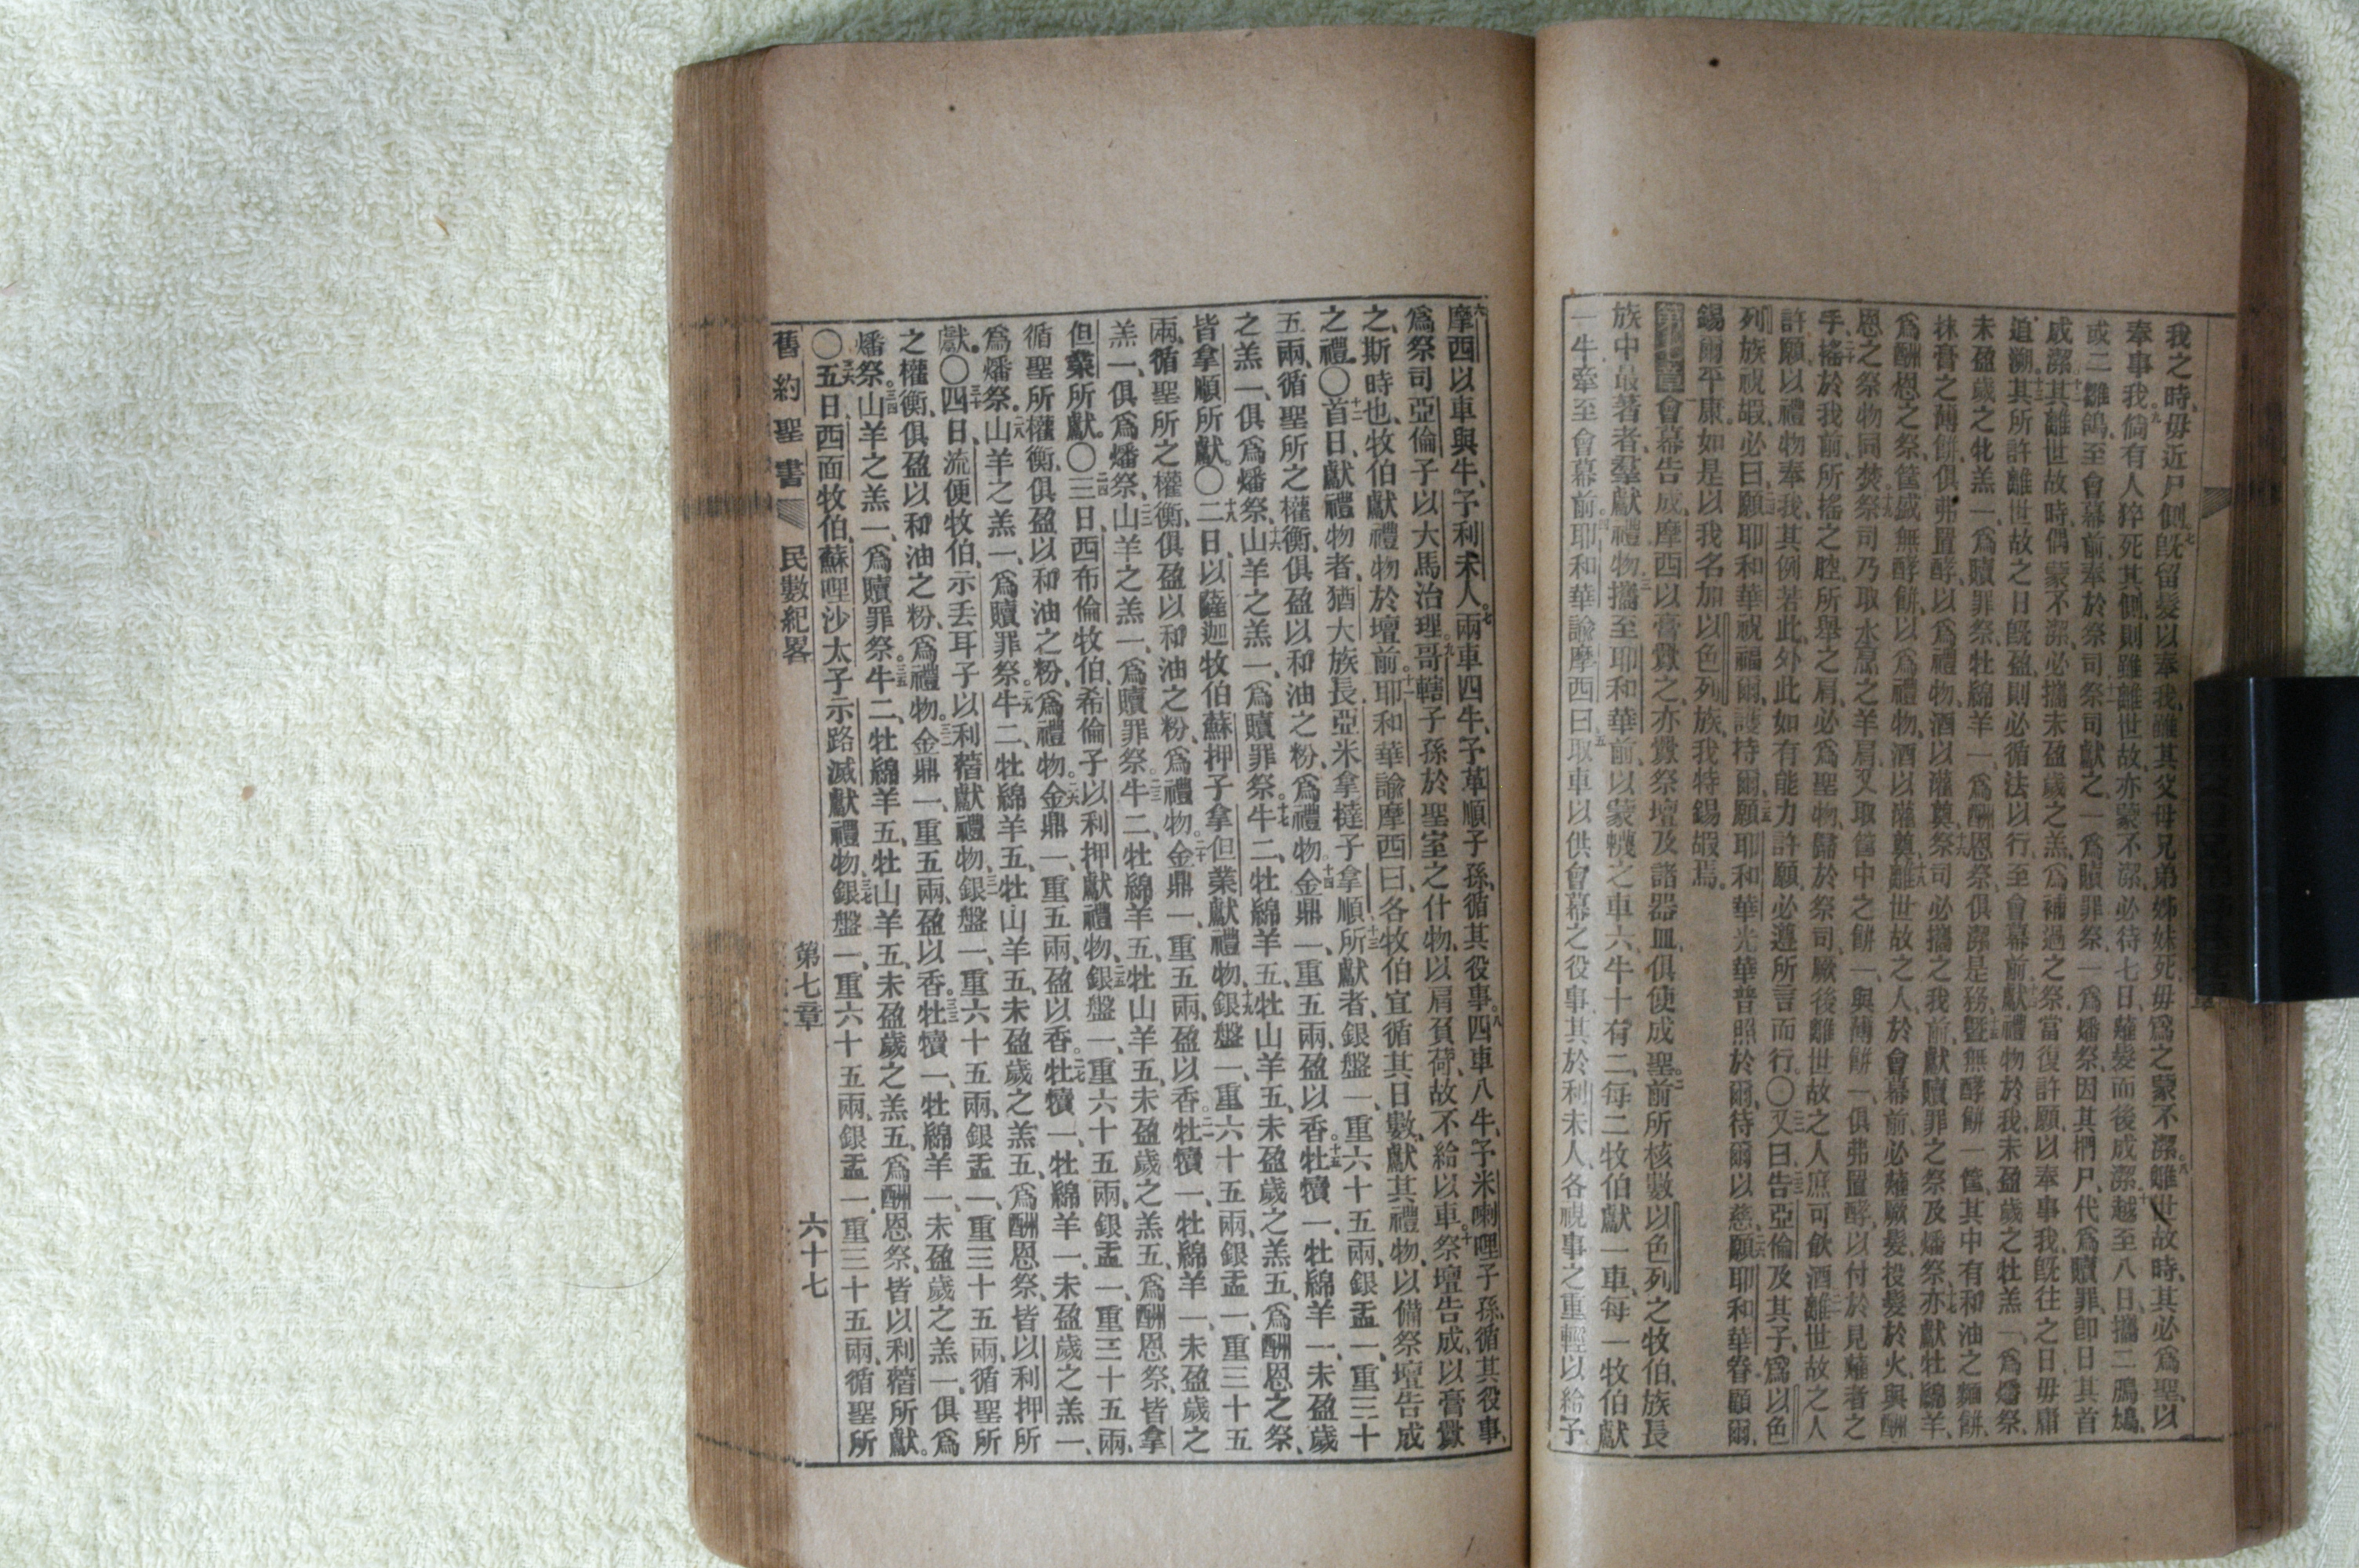 我之時、毋近尸側、旣留髮以奉我、雖其父母兄弟姊妹死、毋爲之蒙不潔、離世故時、其必爲聖、以
奉事我、倘有人猝死其側、則雖離世故、亦蒙不潔、必待七日、薙髮而後成潔、越至八日、攜二鳲鳩、
或二雛鴿、至會幕前、奉於祭司、祭司獻之、一爲贖罪祭、一爲燔祭、因其捫尸、代爲贖罪、卽日其首
成潔、其離世故時、偶蒙不潔、必攜未盈歲之羔、爲補過之祭、當復許願、以奉事我、旣往之日、毋庸
追溯、其所許離世故之日旣盈、則必循法以行、至會幕前、獻禮物於我、未盈歲之牡羔一、爲燔祭、
未盈歲之牝羔一、爲贖罪祭、牡綿羊一、爲酬恩祭、俱潔是務、曁無酵餅一筐、其中有和油之麵餅、
抹膏之薄餅、俱弗置酵、以爲禮物、酒以灌奠、祭司必攜之我前、獻贖罪之祭、及燔祭、亦獻牡綿羊、
爲酬恩之祭、筐盛無酵餅、以爲禮物、酒以灌奠、離世故之人、於會幕前、必薙厥髮、投髮於火、與酬
恩之祭物同焚、祭司乃取水烹之羊肩、又取筐中之餅一、與薄餅一、俱弗置酵、以付於見薙者之
手、搖於我前、所搖之腔、所舉之肩、必爲聖物、歸於祭司、厥後離世故之人、庶可飲酒、離世故之人
許願、以禮物奉我、其例若此、外此如有能力許願、必遵所言而行。〇又曰、告亞倫及其子、爲以色
列族祝嘏、必曰、願耶和華祝福爾、護持爾、願耶和華光華普照於爾、待爾以慈、願耶和華眷顧爾、
錫爾平康、如是以我名加以色列族、我特錫嘏焉。
第七章會幕告成、摩西以膏釁之、亦釁祭壇及諸器皿、俱使成聖、前所核數以色列之牧伯、族長
族中最著者、羣獻禮物、攜至耶和華前、以蒙幭之車六、牛十有二、每二牧伯獻一車、每一牧伯獻
一牛、牽至會幕前、耶和華諭摩西曰、取車以供會幕之役事、其於利未人、各視事之重輕以給予、
摩西以車與牛、予利未人。兩車四牛、予革順子孫、循其役事。四車八牛、予米喇哩子孫、循其役事、
爲祭司亞倫子以大馬治理。哥轄子孫於聖室之什物、以肩負荷、故不給以車。祭壇告成、以膏釁
之、斯時也、牧伯獻禮物於壇前。耶和華諭摩西曰、各牧伯宜循其日數、獻其禮物、以備祭壇告成
之禮。〇首日、獻禮物者、猶大族長、亞米拿撻子拿順、所獻者、銀盤一、重六十五兩、銀盂一、重三十
五兩、循聖所之權衡、俱盈以和油之粉、爲禮物。金鼎一、重五兩、盈以香。牡犢一、牡綿羊一、未盈歲
之羔一、俱爲燔祭。山羊之羔一、爲贖罪祭。牛二、牡綿羊五、牡山羊五、未盈歲之羔五、爲酬恩之祭、
皆拿順所獻。〇二日、以薩迦牧伯、蘇押子拿但業、獻禮物、銀盤一、重六十五兩、銀盂一、重三十五
兩、循聖所之權衡、俱盈以和油之粉、爲禮物。金鼎一、重五兩、盈以香。牡犢一、牡綿羊一、未盈歲之
羔一、俱爲燔祭、山羊之羔一、爲贖罪祭。牛二、牡綿羊五、牡山羊五、未盈歲之羔五、爲酬恩祭、皆拿
但業所獻。〇三日、西布倫牧伯、希倫子以利押獻禮物、銀盤一、重六十五兩、銀盂一、重三十五兩、
循聖所權衡、俱盈以和油之粉、爲禮物。金鼎一、重五兩、盈以香。牡犢一、牡綿羊一、未盈歲之羔一、
爲燔祭。山羊之羔一、爲贖罪祭。牛二、牡綿羊五、牡山羊五、未盈歲之羔五、爲酬恩祭、皆以利押所
獻。〇四日、流便牧伯、示丟耳子以利蓿獻禮物、銀盤一、重六十五兩、銀盂一、重三十五兩、循聖所
之權衡、俱盈以和油之粉、爲禮物。金鼎一、重五兩、盈以香。牡犢一、牡綿羊一、未盈歲之羔一、俱爲
燔祭。山羊之羔一、爲贖罪祭。牛二、牡綿羊五、牡山羊五、未盈歲之羔五、爲酬恩祭、皆以利蓿所獻。
〇五日、西面牧伯、蘇哩沙太子示路滅獻禮物、銀盤一、重六十五兩、銀盂一、重三十五兩、循聖所
舊約聖書 民數紀畧 第七章 六十七